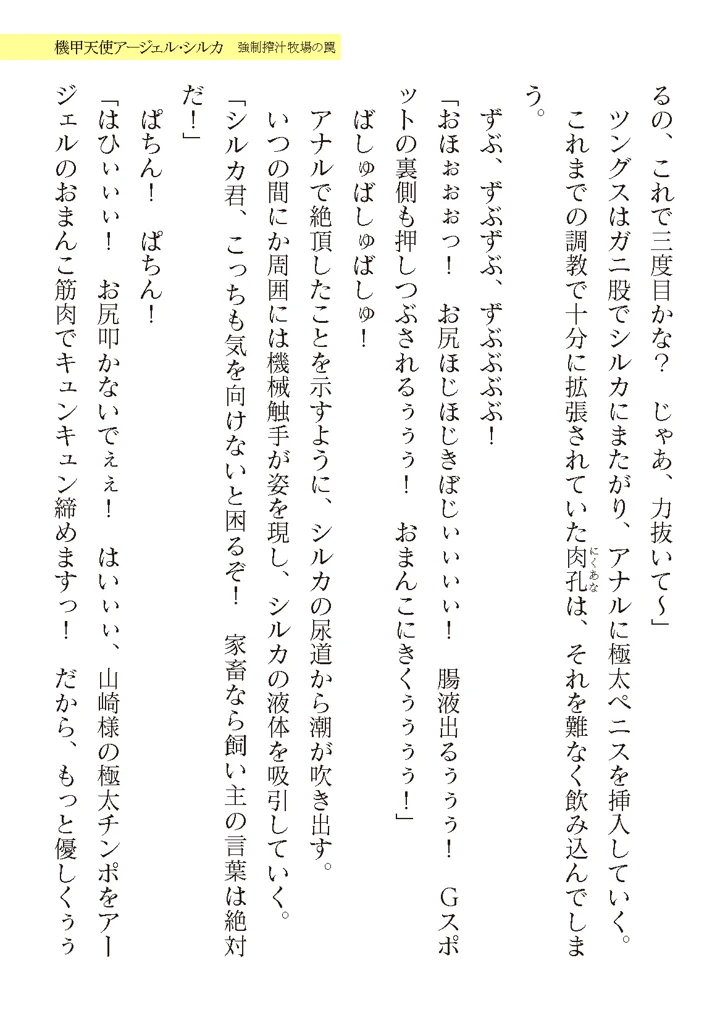 機甲天使アージェル・シルカ　強制搾汁牧場の罠
るの、これで三度目かな？　じゃあ、力抜いて～」
　ツングスはガニ股でシルカにまたがり、アナルに極太ペニスを挿入していく。
　これまでの調教で十分に拡張されていた肉孔（にくあな）は、それを難なく飲み込んでしま
う。
　ずぶ、ずぶずぶ、ずぶぶぶぶ！
「おほぉぉぉっ！　お尻ほじほじきぼじぃぃぃぃ！　腸液出るぅぅぅ！　Ｇスポ
ットの裏側も押しつぶされるぅぅぅ！　おまんこにきくぅぅぅぅ！」
　ばしゅばしゅばしゅ！
　アナルで絶頂したことを示すように、シルカの尿道から潮が吹き出す。
　いつの間にか周囲には機械触手が姿を現し、シルカの液体を吸引していく。
「シルカ君、こっちも気を向けないと困るぞ！　家畜なら飼い主の言葉は絶対
だ！」
　ぱちん！　ぱちん！
「はひぃぃぃ！　お尻叩かないでぇぇ！　はいぃぃ、山崎様の極太チンポをアー
ジェルのおまんこ筋肉でキュンキュン締めますっ！　だから、もっと優しくぅぅ